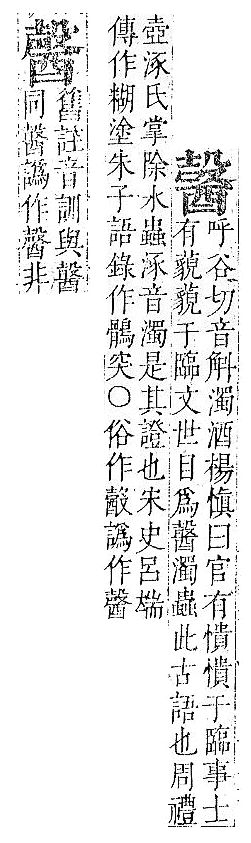 呼谷切音斛濁酒楊慎曰官有憒憒于臨事士
有藐藐于臨文世目爲濁蟲此古語也周禮
壺涿氏掌除水蟲涿音濁是其證也宋史呂端
傳作糊塗朱子語錄作鶻突○俗作譌作
舊註音訓與
同譌作非